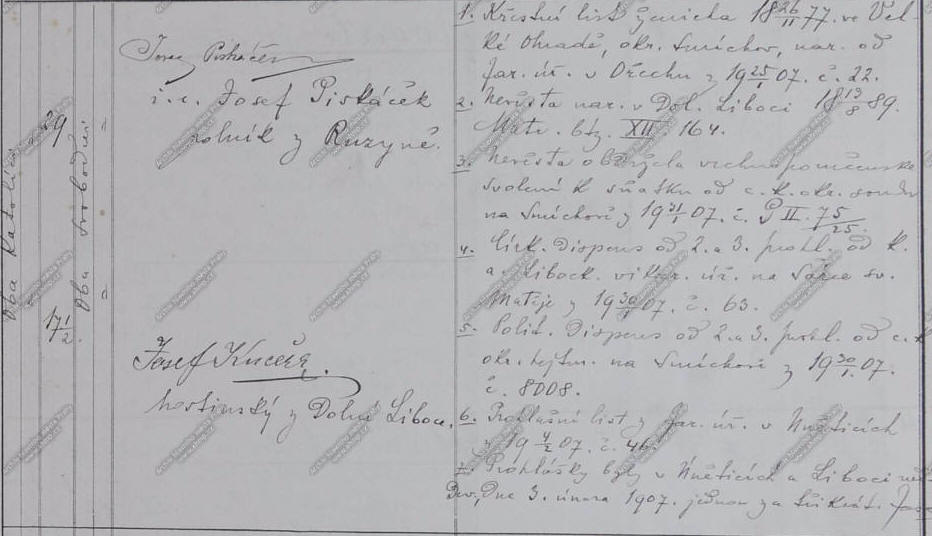 29
17 1/2
Oba katolíci
Oba svobodní
Josef Piskáček
i. e. Josef Piskáček
rolník z Ruzyně.
Josef Kučera
hostinský z Dolní Liboce.
1. Křestní list ženicha 18 26/II 77. ve Vel-
ké Ohradě, okr. Smíchov, nar. od
far. úř. v Ořechu z 19 25/1 07. č. 22.
2. Nevěsta nar. v Dol. Liboci 18 13/8 89.
Matr. XII. 164.
3. Nevěsta obdržela vrchnoporučenské
svolení k sňatku od c. k. okr. soudu
na Smíchově z 19 31/1 07. č. P II. 75/25.
4. Círk. Dispens od 2. a 3. prohl. od k.
a. Libock. vikar. úř. na Šárce sv.
Matěje z 19 30/1 07. č. 63.
5. Polit. Dispens od 2. a 3. prohl. od c. k.
okr. hejtm. na Smíchově z 19 30/1 07.
č. 8008.
6. Prohlášní list z far. úř. v Úněticích
z 19 4/2 07. č. 46.
7. Prohlášky byly v Úněticích a Liboci
dne 3. února 1907. jednou za třikrát.